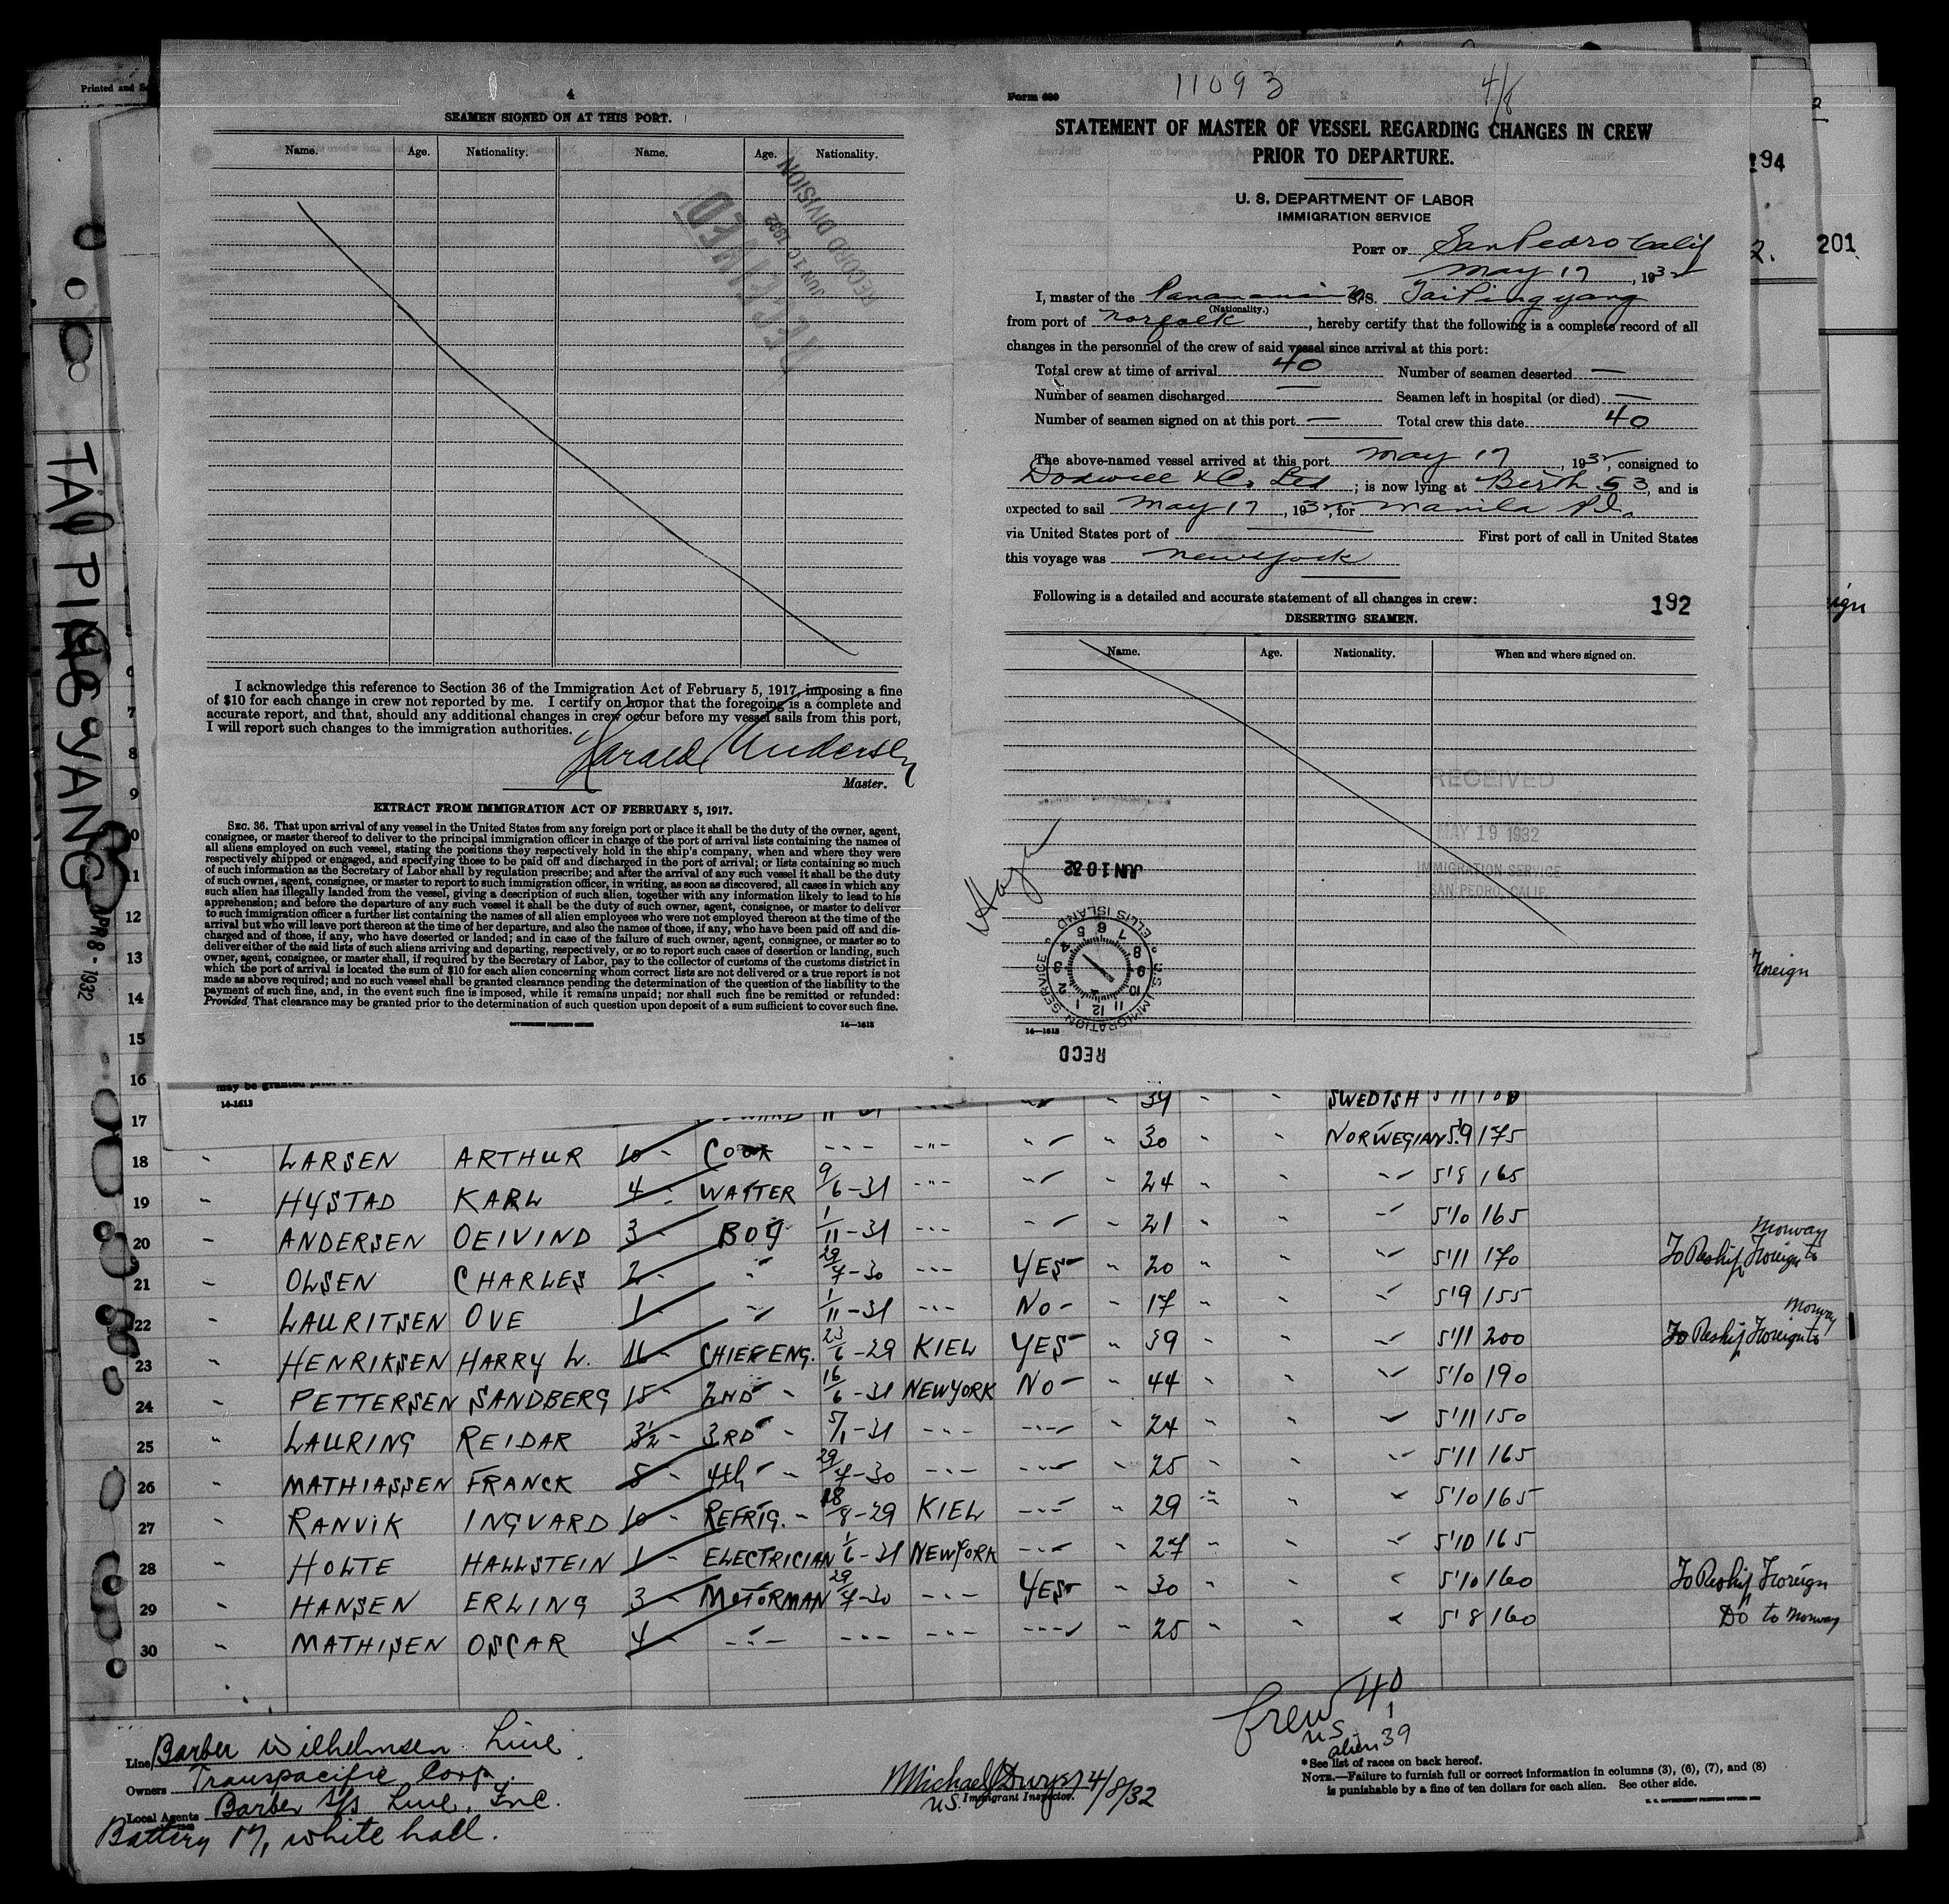 Printed and
TAI PING YANG
APR 8 - 1932
4
SEAMEN SIGNED ON AT THIS PORT.
Name. Age. Nationality. Name. Age. Nationality.
RECEIVED
JUN 10 1932
RECORD DIVISION
I acknowledge this reference to Section 36 of the Immigration Act of February 5, 1917, imposing a fine
of $10 for each change in crew not reported by me. I certify on honor that the foregoing is a complete and
accurate report, and that, should any additional changes in crew occur before my vessel sails from this port,
I will report such changes to the immigration authorities.
Harald Andersen
Master.
EXTRACT FROM IMMIGRATION ACT OF FEBRUARY 5, 1917.
SEC. 36. That upon arrival of any vessel in the United States from any foreign port or place it shall be the duty of the owner, agent,
consignee, or master thereof to deliver to the principal immigration officer in charge of the port of arrival lists containing the names of
all aliens employed on such vessel, stating the positions they respectively hold in the ship's company, when and where they were
respectively shipped or engaged, and specifying those to be paid off and discharged in the port of arrival; or lists containing so much
of such information as the Secretary of Labor shall by regulation prescribe; and after the arrival of any such vessel it shall be the duty
of such owner, agent, consignee, or master to report to such immigration officer, in writing, as soon as discovered, all cases in which any
such alien has illegally landed from the vessel, giving a description of such alien, together with any information likely to lead to his
apprehension; and before the departure of any such vessel it shall be the duty of such owner, agent, consignee, or master to deliver
to such immigration officer a further list containing the names of all alien employees who were not employed thereon at the time of the
arrival but who will leave port thereon at the time of her departure, and also the names of those, if any, who have been paid off and dis-
charged and of those, if any, who have deserted or landed; and in case of the failure of such owner, agent, consignee, or master so to
deliver either of the said lists of such aliens arriving and departing, respectively, or so to report such cases of desertion or landing, such
owner, agent, consignee, or master shall, if required by the Secretary of Labor, pay to the collector of customs of the customs district in
which the port of arrival is located the sum of $10 for each alien concerning whom correct lists are not delivered or a true report is not
made as above required; and no such vessel shall be granted clearance pending the determination of the question of the liability to the
payment of such fine, and, in the event such fine is imposed, while it remains unpaid; nor shall such fine be remitted or refunded:
Provided, That clearance may be granted prior to the determination of such question upon deposit of a sum sufficient to cover such fine.
GOVERNMENT PRINTING OFFICE 14—1613
Form 689 11093 4/8
STATEMENT OF MASTER OF VESSEL REGARDING CHANGES IN CREW
PRIOR TO DEPARTURE.
U. S. DEPARTMENT OF LABOR
IMMIGRATION SERVICE
PORT OF San Pedro Calif
May 17, 1932
I, master of the Panamanian S.S. Tai Ping yang
(Nationality.)
from port of Norfolk, hereby certify that the following is a complete record of all
changes in the personnel of the crew of said vessel since arrival at this port:
Total crew at time of arrival 40 Number of seamen deserted —
Number of seamen discharged — Seamen left in hospital (or died) —
Number of seamen signed on at this port — Total crew this date 40
The above-named vessel arrived at this port May 17, 1932, consigned to
Dodwell & Co. Ltd; is now lying at Berth 53, and is
expected to sail May 17, 1932, for Manila P.I.
via United States port of First port of call in United States
this voyage was New York
Following is a detailed and accurate statement of all changes in crew: 192
DESERTING SEAMEN.
Name. Age. Nationality. When and where signed on.
RECEIVED
MAY 19 1932
IMMIGRATION SERVICE
SAN PEDRO, CALIF.
JUN 10 32
U.S. IMMIGRATION SERVICE ELLIS ISLAND
1 2 3 4 5 6 7 8 9 10 11 12
RECD
14—1613
194
201
Foreign
7
8
9
11
12
13
14
15
16
may be granted prior to
14-1613
17 34 SWEDISH 5'11
18 LARSEN ARTHUR 10 COOK 30 NORWEGIAN 5'9 175
19 HYSTAD KARL 4 WAITER 9/6-31 24 5'8 165
20 ANDERSEN OEIVIND 3 BOY 1/11-31 21 5'10 165
21 OLSEN CHARLES 2 29/7-30 YES 20 5'11 170 To Reship Foreign to Norway
22 LAURITSEN OVE 1 1/11-31 NO 17 5'9 155
23 HENRIKSEN HARRY L. 16 CHIEF ENG. 23/6-29 KIEL YES 39 5'11 200 To Reship Foreign to Norway
24 PETTERSEN SANDBERG 15 2ND 16/6-31 NEW YORK NO 44 5'10 190
25 LAURING REIDAR 3½ 3RD 5/1-31 24 5'11 150
26 MATHIASSEN FRANCK 8 4th 29/7-30 25 5'11 165
27 RANVIK INGVARD 10 REFRIG. 18/8-29 KIEL 29 5'10 165
28 HOLTE HALLSTEIN 1 ELECTRICIAN 1/6-31 NEW YORK 27 5'10 165
29 HANSEN ERLING 3 MOTORMAN 29/7-30 YES 30 5'10 160 To Reship Foreign
30 MATHISEN OSCAR 4 25 5'8 160 Do to Norway
Crew 40
U.S. 1
alien 39
Line Barber Wilhelmsen Line
Owners Transpacific Corp.
Local Agents Barber S/S Line, Inc.
Battery Pl, white hall.
Michael J Dwyer 4/8/32
U.S. Immigrant Inspector.
*See list of races on back hereof.
NOTE.—Failure to furnish full or correct information in columns (3), (6), (7), and (8)
is punishable by a fine of ten dollars for each alien. See other side.